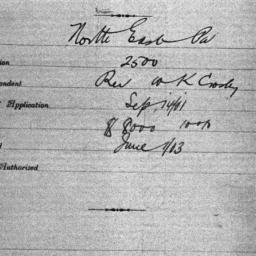 North East Pa
ion 2500
pondent Rev W K Crosby
Application Sep 14/01
$ 8000
June 1/03
Authorized